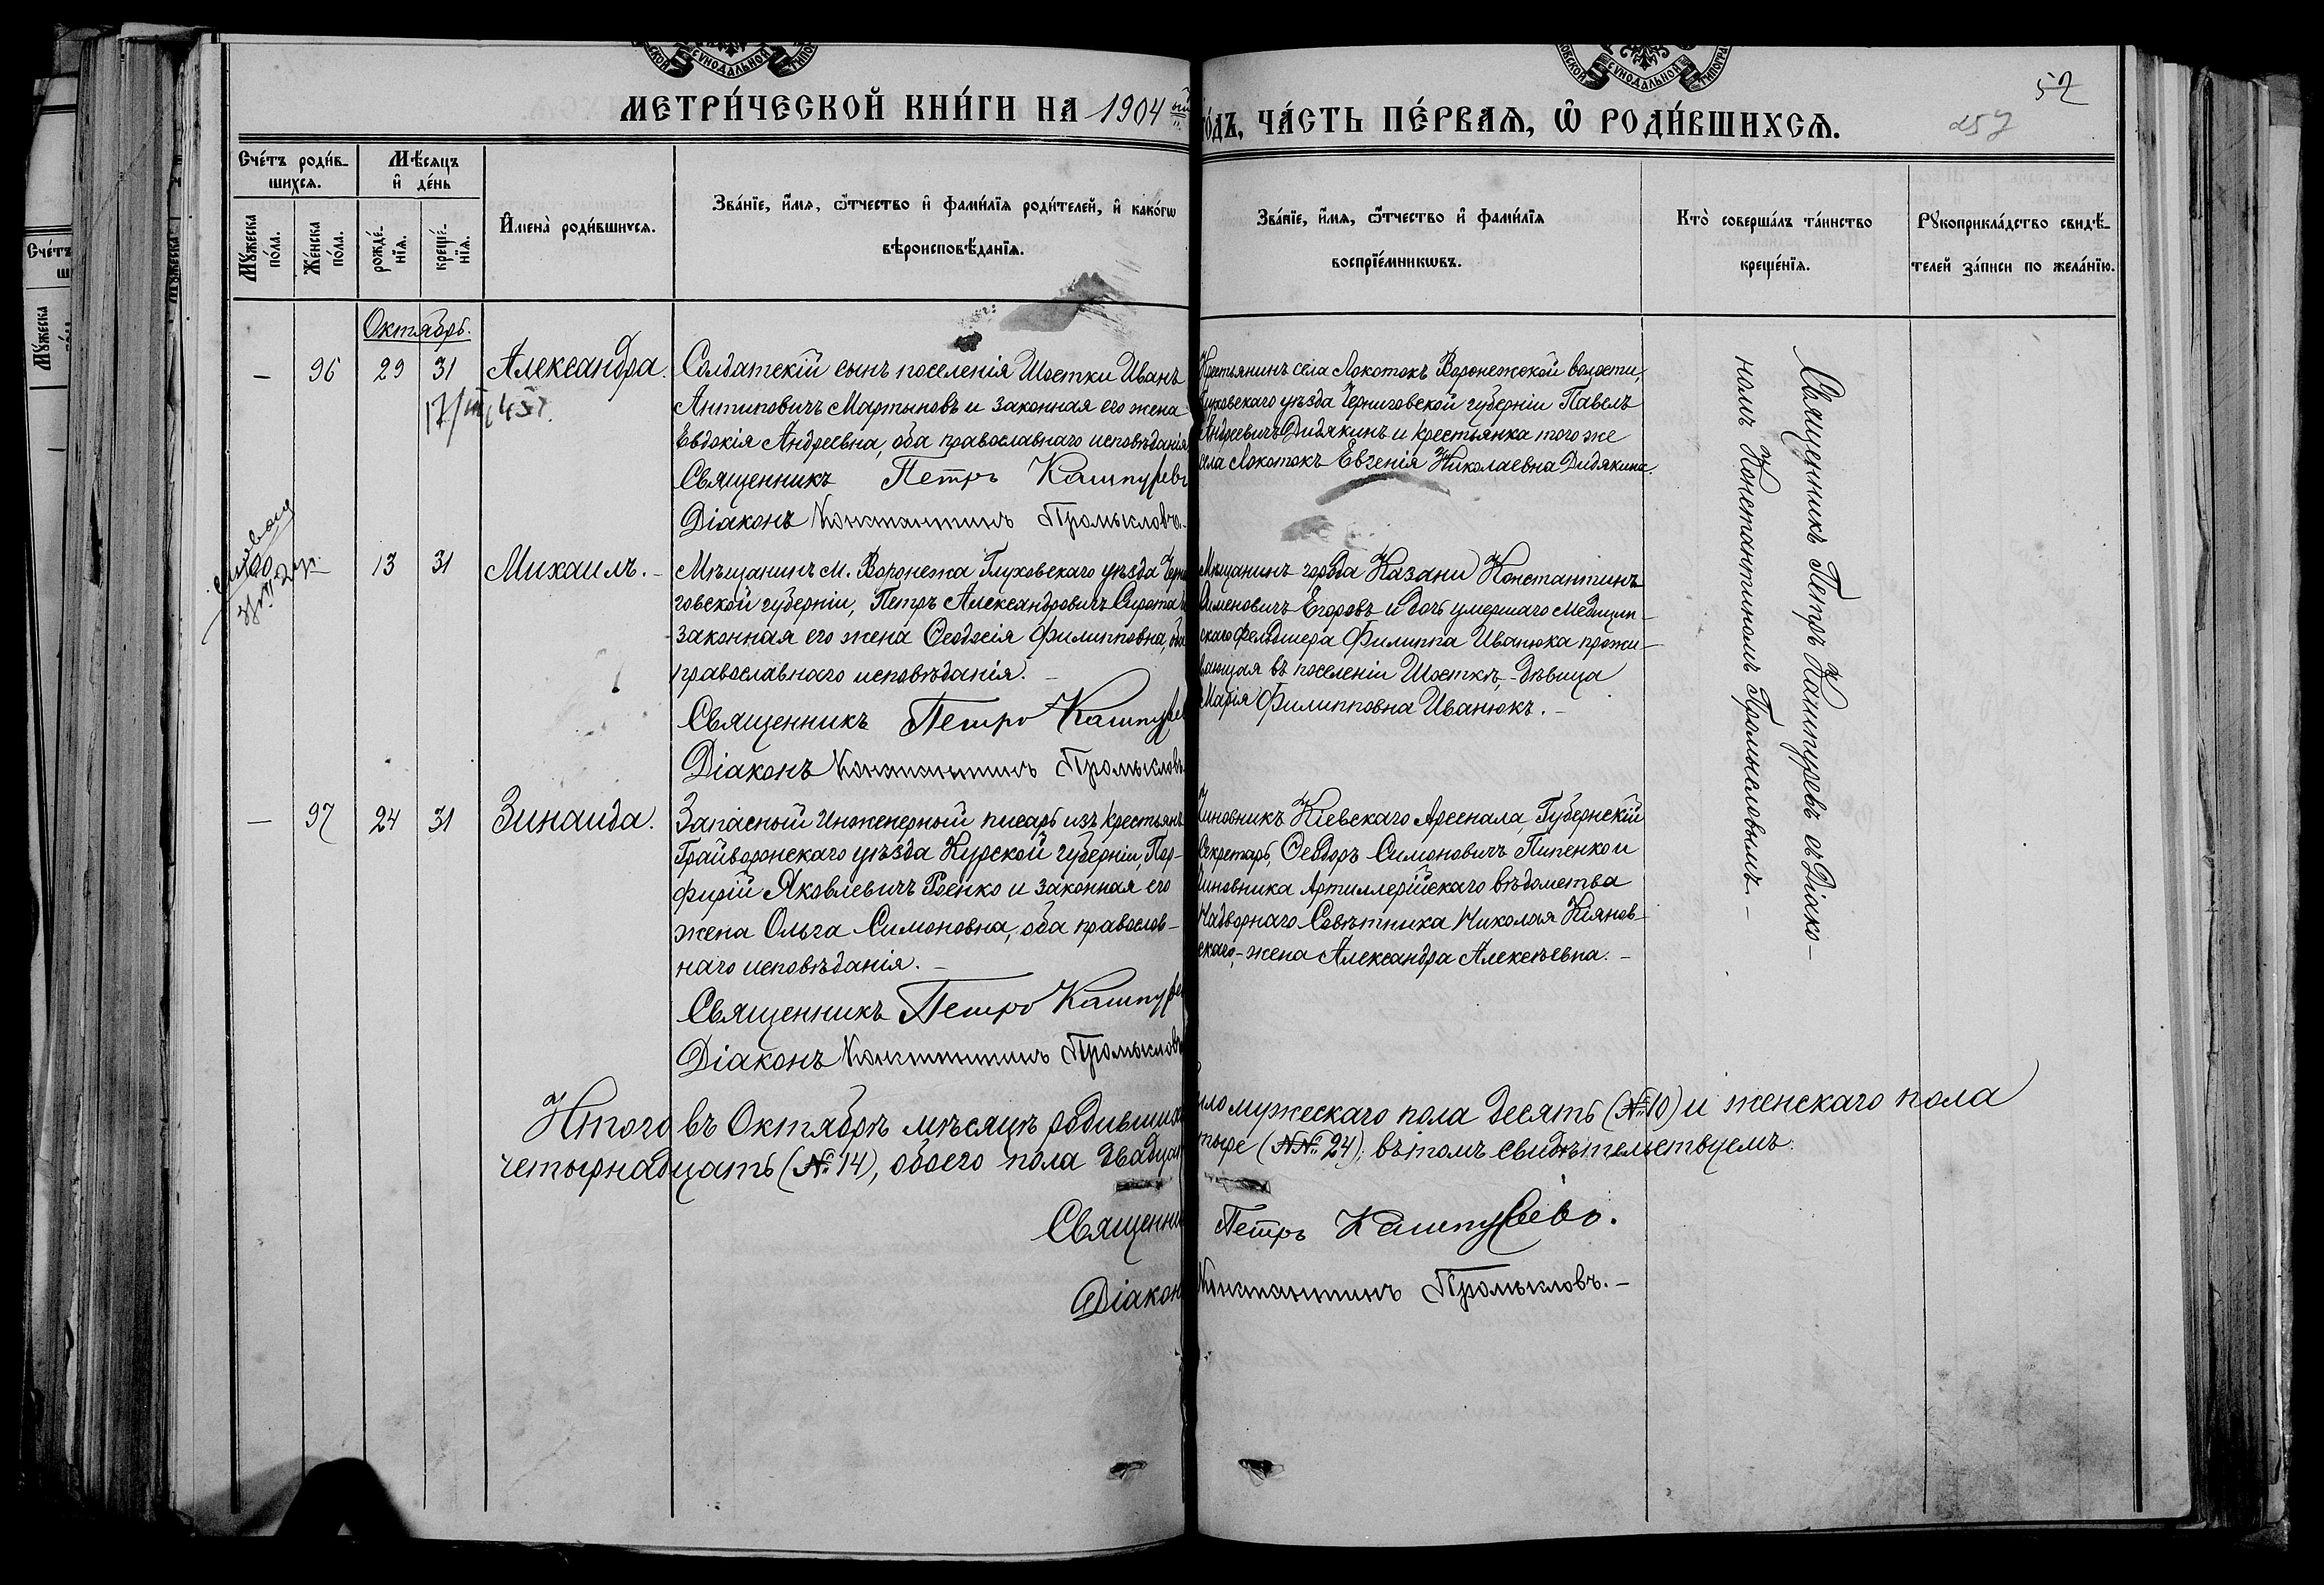 МЕТРИ́ЧЕСКОЙ КНИ́ГИ НА 1904 ый
го́дъ, ЧА́СТЬ ПЕ́РВАѦ, Ѡ҆ РОДИ́ВШИХСѦ.
52
257
Сче́тъ роди́в-
шихсѧ.
Мѣ́сѧцъ
и҆ де́нь
Мꙋ́жеска
по́ла.
Же́нска
по́ла.
рожде́-
нїѧ.
креще́-
нїѧ.
И҆мена̀ роди́вшихсѧ.
Зва́нїе, и҆́мѧ, ѻ҆́тчество и҆ фами́лїѧ роди́телей, и҆ како́гѡ
вѣроисповѣ́данїѧ.
Зва́нїе, и҆́мѧ, ѻ҆́тчество и҆ фами́лїѧ
воспрїе́мникѡвъ.
Кто̀ соверша́лъ та́инство
креще́нїѧ.
Рꙋкоприкла́дство свидѣ́-
телей за́писи по жела́нїю.
Октябрь.
— 96 29 31 Александра.
Солдатскій сынъ поселенія Шостки Иванъ
Антиповичъ Мартыновъ и законная его жена
Евдокія Андреевна, оба православнаго исповѣданія
Священникъ Петръ Кашпуревъ
Діаконъ Константинъ Промысловъ.
Крестьянинъ села Локотокъ Воронежской волости,
Глуховскаго уѣзда Черниговской губерніи Павелъ
Андреевичъ Дидякинъ и крестьянка того же
села Локотокъ Евгенія Николаевна Дидякина.
Священникъ Петръ Кашпуревъ съ Діако-
номъ Константиномъ Промысловымъ.-
13 31 Михаилъ.-
Мѣщанинъ м. Воронежа Глуховскаго уѣзда Черни
говской губерніи, Петръ Александровичъ Сирота и
законная его жена Ѳеодосія Филипповна, оба
православнаго исповѣданія.-
Священникъ Петръ Кашпурев
Діаконъ Константинъ Промысловъ
Мѣщанинъ города Казани Константинъ
Сименовичъ Егоровъ и дочь умершаго Медицин-
скаго фельдшера Филиппа Иванюка прожи-
вающая въ поселеніи Шосткѣ,-дѣвица
Марія Филипповна Иванюкъ.-
— 97 24 31 Зинаида.
Запасной Инженерный писарь изъ крестьянъ
Грайворонскаго уѣзда Курской губерніи, Пор-
фирій Яковлевичъ Роенко и законная его
жена Ольга Симоновна, оба православ-
наго исповѣданія.-
Священникъ Петръ Кашпурев
Діаконъ Константинъ Промысловъ
Чиновникъ Кіевскаго Арсенала, Губернскій
Секретарь, Ѳеодоръ Симоновичъ Пипенко и
чиновника Артиллерійскаго вѣдомства
Надворнаго Совѣтника Николая Кіянов-
скаго,-жена Александра Алексѣевна.-
Итого въ Октябрѣ мѣсяцѣ родившихся было мужескаго пола десять (№ 10) и женскаго пола
четырнадцать (№ 14), обоего пола двадцать четыре (№№ 24); въ томъ свидѣтельствуемъ:
Священникъ Петръ Кашпуревъ.
Діаконъ Константинъ Промысловъ.-